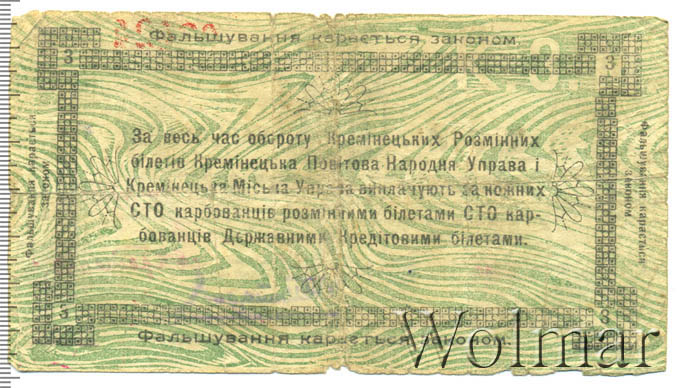 Фальшування карається законом.
3 3
К. 3.
За весь час обороту Кремінецьких Розмінних
білетів Кремінецька Повітова Народня Управа і
Кремінецька Міська Управа виплачують за кожних
СТО карбованців розмінними білетами СТО кар-
бованців Державними Кредітовими білетами.
Фальшування карається законом
Фальшування карається законом
3 3
Фальшування карається законом.
Wolmar